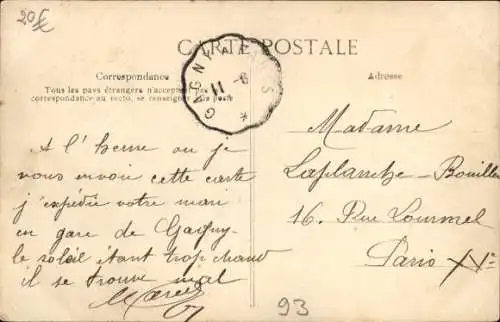 20€
CARTE POSTALE
GAGNY A PARIS
9-11
Correspondance
Tous les pays étrangers n'acceptent pas la
correspondance au recto, se renseigner à la poste
A l'heure ou je
vous envoi cette carte
j'expédie votre mari
en gare de Gagny
le soleil étant trop chaud
il se trouve mal
Marcel
Adresse
Madame
Laplanche-Bouillon
16. Rue Lourmel
Paris XVe
93